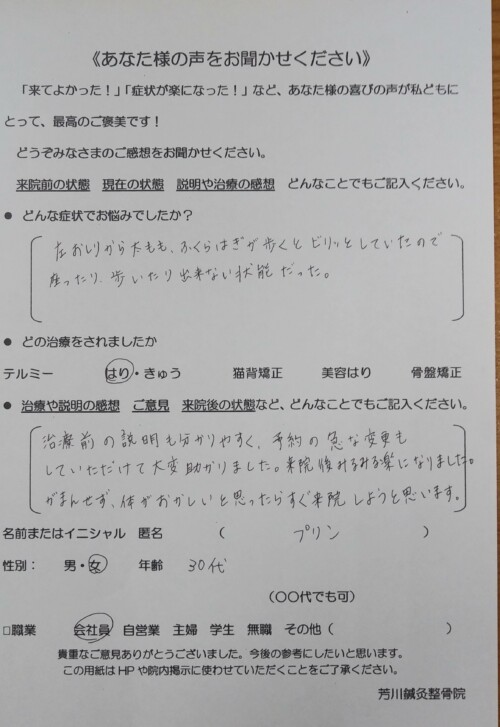 《あなた様の声をお聞かせください》
「来てよかった！」「症状が楽になった！」など、あなた様の喜びの声が私どもに
とって、最高のご褒美です！
どうぞみなさまのご感想をお聞かせください。
来院前の状態 現在の状態 説明や治療の感想 どんなことでもご記入ください。
● どんな症状でお悩みでしたか？
左おしりから太もも、ふくらはぎが歩くとビリッとしていたので
座ったり、歩いたり出来ない状態だった。
● どの治療をされましたか
テルミー はり・きゅう 猫背矯正 美容はり 骨盤矯正
● 治療や説明の感想 ご意見 来院後の状態など、どんなことでもご記入ください。
治療前の説明も分かりやすく、予約の急な変更も
していただけて大変助かりました。来院後みるみる楽になりました。
がまんせず、体がおかしいと思ったらすぐ来院しようと思います。
名前またはイニシャル 匿名 （ プリン ）
性別： 男・女 年齢 30代
（〇〇代でも可）
□職業 会社員 自営業 主婦 学生 無職 その他（ ）
貴重なご意見ありがとうございました。今後の参考にしたいと思います。
この用紙はHPや院内掲示に使わせていただくことをご了承ください。
芳川鍼灸整骨院